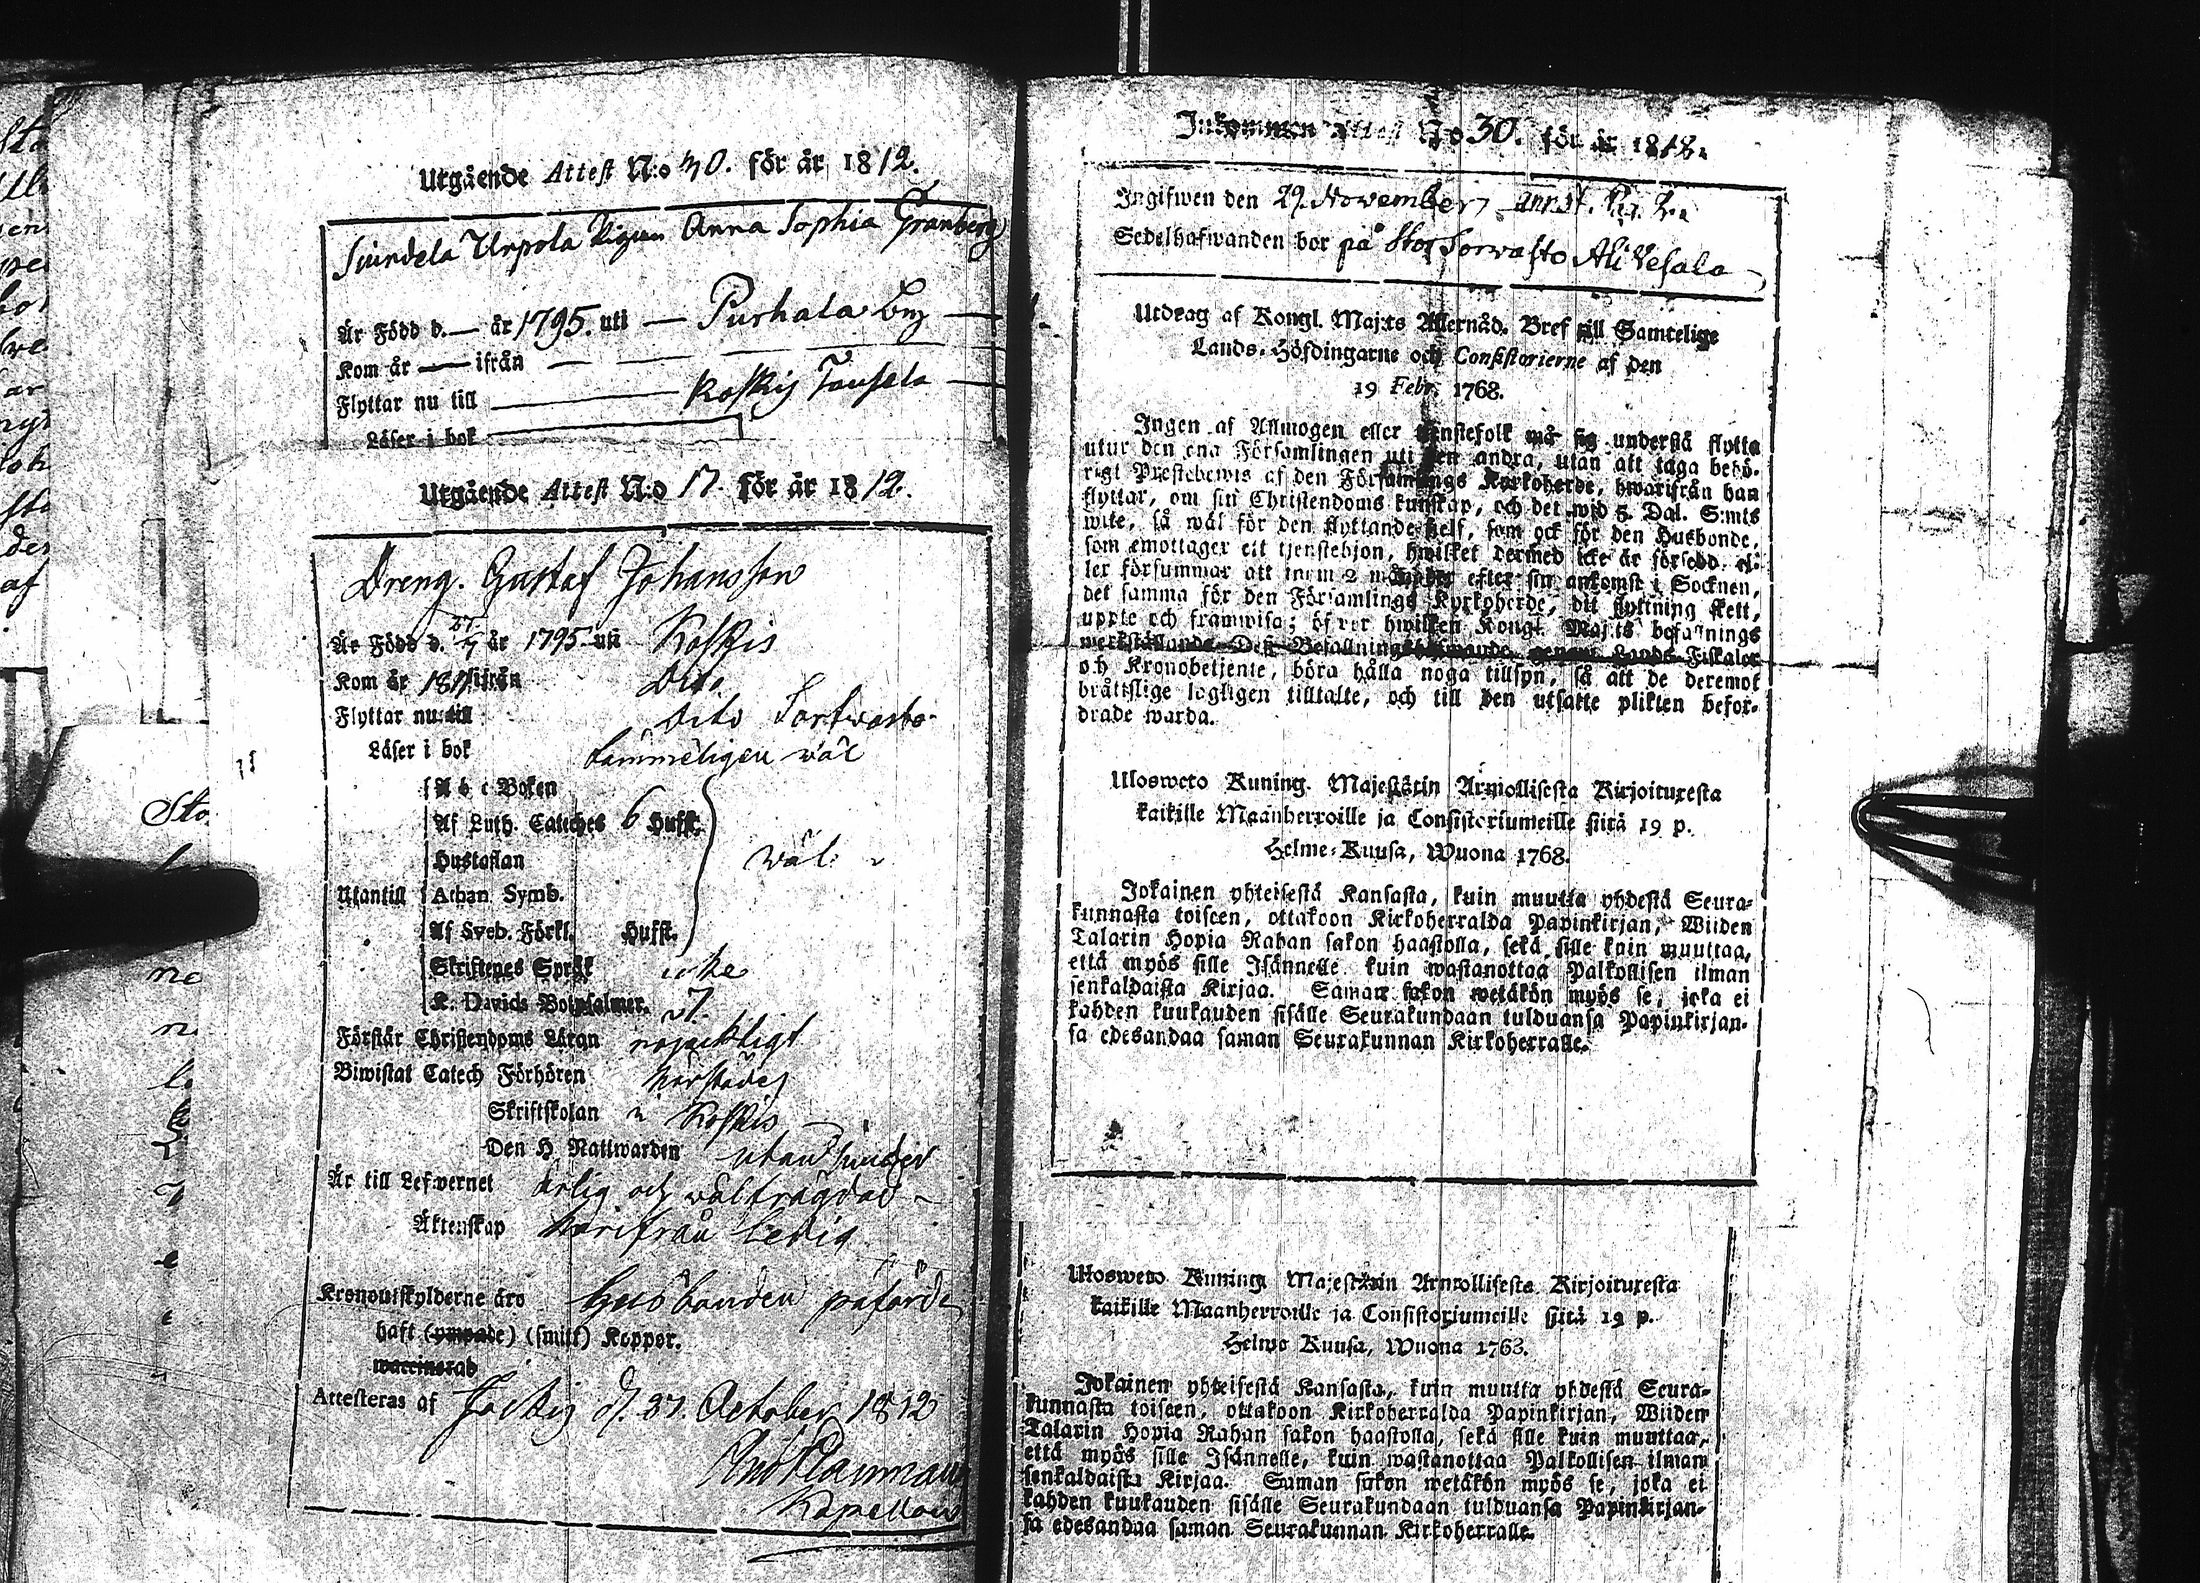 Utgående Attest N:o 30. för år 1812.
Urpola Pigan Anna Sophia Granberg
Är Född d. — år 1795. uti — Purhala By —
Kom år — ifrån —
Flyttar nu till — Koskis Tausela —
Läser i bok
Utgående Attest N:o 17. för år 1812.
Dreng. Gustaf Johansson
Är Född d. 27/7 år 1795 uti Koskis
Kom år 1811 ifrån Dito
Flyttar nu till Dito Sortwasto
Läser i bok tämmeligen wäl
A b c Boken
Af Luth. Cateches 6 Hufst.
Hustaflan wäl
Utantill Athan Symb.
Af Sveb. Förkl. Hufst.
Skriftenes Språk icke
K. Davids Botpsalmer. 7.
Förstår Christendoms Läran nöjaktligt
Biwistat Catech Förhören härstädes
Skriftskolan i Koskis
Den H. Nattwarden utan hinder
Är till Lefwernet ärlig och wälfrägdad
Äktenskap härifrån ledig
Kronoutskylderne äro Husbonden påförde
haft (ympade) (smitt) Koppor.
waccinerad
Attesteras af Koskis d. 31. October 1812
Kapellan
Inkommen Attest No 30. för år 1812.
Ingifwen den 29. November
Sedelhafwanden bor på Stor Sorwasto Ali Vesala
Utdrag af Kongl. Maj:ts Allernåd. Bref till Samtelige
Lands-Höfdingarne och Consistorierne af den
19 Febr. 1768.
Ingen af Allmogen eller tjenstefolk må sig understå flytta
utur den ena Församlingen uti den andra, utan att taga behö-
rigt Prestebewis af den Församlings Kyrkoherde, hwarifrån han
flyttar, om sin Christendoms kunskap, och det wid 5. Dal. S:mts
wite, så wäl för den flyttande self, som ock för den Husbonde,
som emottager ett tjenstehjon, hwilket dermed icke är försedd, el-
ler försummar att inom 2 månader efter sin ankomst i Socknen,
det samma för den Församlings Kyrkoherde, dit flyttning skett,
uppte och framwisa; öfver hwilken Kongl. Maj:ts befallnings
werkställande Dess Befallningshafwande, genom Lands-Fiskaler
och Kronobetjente, böra hålla noga tillsyn, så att de deremot
bråttslige lagligen tilltalte, och till den utsatte plikten befor-
drade warda.
Ulosweto Kuning. Majestätin Armollisesta Kirjoituxesta
kaikille Maanherroille ja Consistoriumeille siitä 19 p.
Helme-Kuusa, Wuona 1768.
Jokainen yhteisestä Kansasta, kuin muutta yhdestä Seura-
kunnasta toiseen, ottakoon Kirkoherralda Papinkirjan, Wiiden
Talarin Hopia Rahan sakon haastolla, sekä sille kuin muuttaa,
että myös sille Isännelle kuin wastanottaa Palkollisen ilman
senkaldaista Kirjaa. Saman sakon wetäkön myös se, joka ei
kahden kuukauden sisälle Seurakundaan tulduansa Papinkirjan-
sa edesandaa saman Seurakunnan Kirkoherralle.
Ulosweto Kuning Majestätin Armollisesta Kirjoituxesta
kaikille Maanherroille ja Consistoriumeille siitä 19 p.
Helme Kuusa, Wuona 1768.
Jokainen yhteisestä Kansasta, kuin muutta yhdestä Seura-
kunnasta toiseen, ottakoon Kirkoherralda Papinkirjan, Wiiden
Talarin Hopia Rahan sakon haastolla, sekä sille kuin muuttaa,
että myös sille Isännelle, kuin wastanottaa Palkollisen ilman
senkaldaista Kirjaa. Saman sakon wetäkön myös se, joka ei
kahden kuukauden sisälle Seurakundaan tulduansa Papinkirjan-
sa edesandaa saman Seurakunnan Kirkoherralle.